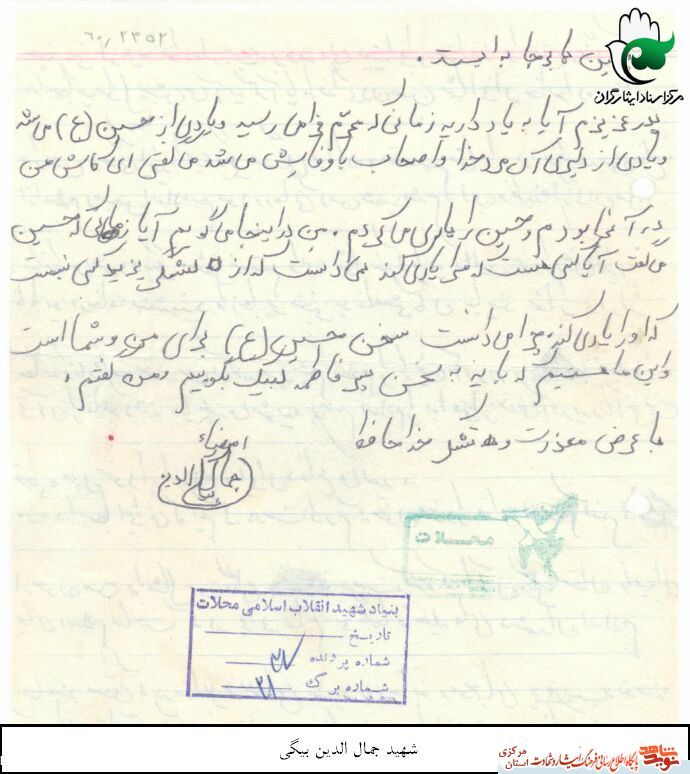 ۶۰/۲۳۵۲
مرکز اسناد ایثارگران
این کار بجا به است.
پدر عزیزم آیا به یاد دارید زمانی که محرم فرا می رسید و یادی از حسین (ع) می شد
و یادی از دلیری آن مرد خدا و اصحاب با وفایش می شد می گفتی ای کاش من
در آنجا بودم و حسین را یاری می کردم. من در اینجا می گویم آیا زمانی که حسین
می گفت آیا کسی هست که مرا یاری کند می دانست که از لشگر یزید کسی نیست
که او را یاری کند چرا می دانست سخن حسین (ع) برای من و شما است
و این ما هستیم که باید به سخن پسر فاطمه لبیک بگوییم و من گفتم.
با عرض معذرت و تشکر خدا حافظ
امضاء
جمال الدین بیگی
محلات
بنیاد شهید انقلاب اسلامی محلات
تاریخ
شماره پرونده ۳۸
شماره برگ ۳۱
شهید جمال الدین بیگی
نوید شاهد
پایگاه اطلاع رسانی فرهنگ ایثار و شهادت استان مرکزی